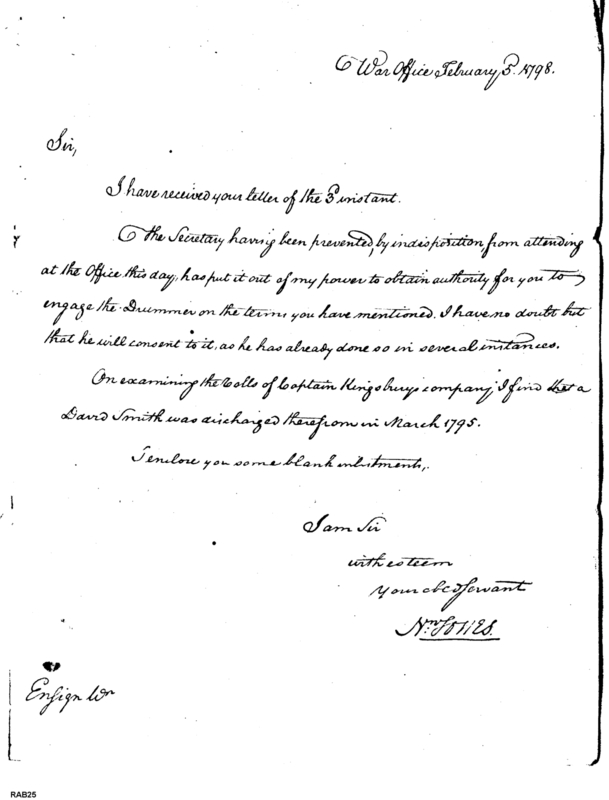 War Office February 5th. 1798.
Sir,
I have received your letter of the 3d instant.
The Secretary having been prevented, by indisposition from attending
at the Office this day, has put it out of my power to obtain authority for you to
engage the Drummer on the terms you have mentioned. I have no doubt but
that he will consent to it, as he has already done so in several instances.
On examining the Rolls of Captain Kingsburys company, I find that a
David Smith was discharged therefrom in March 1795.
I enclose you some blank inlistments.
I am Sir
with esteem
your obed servant
Wm Jones.
Ensign Wm
RAB25